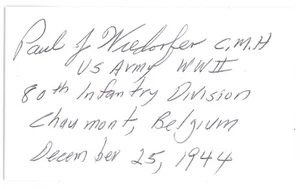 Paul J Wiedorfer C.M.H
US Army WWII
80th Infantry Division
Chaumont, Belgium
December 25, 1944